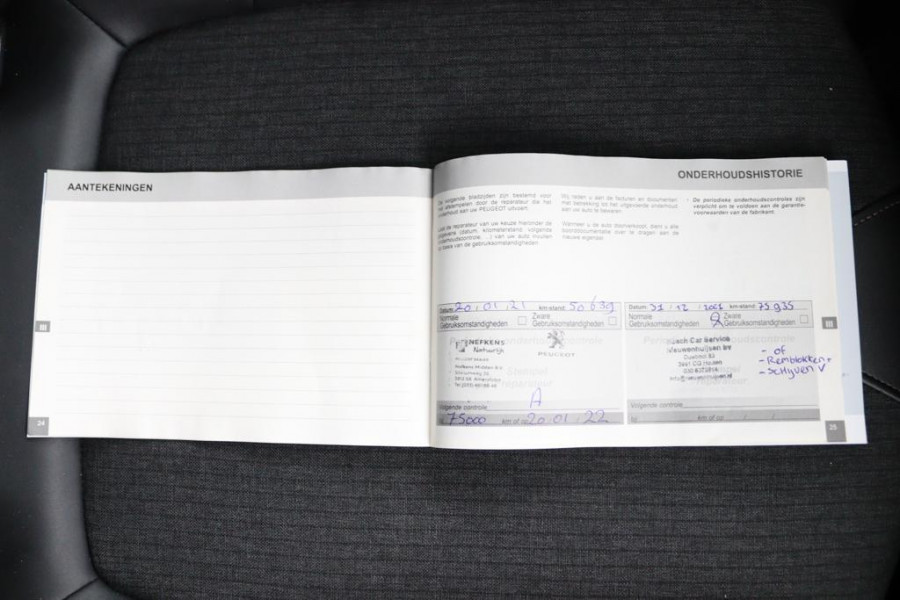 AANTEKENINGEN
III
24
ONDERHOUDSHISTORIE
volgende bladzijden zijn bestemd voor
afstempelen door de reparateur die het
onderhoud aan uw PEUGEOT uitvoert.
de reparateur van uw keuze hieronder de
gegevens (datum, kilometerstand, volgende
onderhoudscontrole, ...) van uw auto invullen
basis van de gebruiksomstandigheden
Wij raden u aan de facturen en documenten
met betrekking tot het uitgevoerde onderhoud
aan uw auto te bewaren.
Wanneer u de auto doorverkoopt, dient u alle
boorddocumentatie over te dragen aan de
nieuwe eigenaar.
De periodieke onderhoudscontroles zijn
verplicht om te voldoen aan de garantie-
voorwaarden van de fabrikant.
Datum: 20.01.21 km-stand: 50639
Normale Gebruiksomstandigheden
Zware Gebruiksomstandigheden
NEFKENS
PEUGEOT
A
Volgende controle
75000 km of op 20.01.22
Datum: 31.12. km-stand: 75.935
Normale Gebruiksomstandigheden
Zware Gebruiksomstandigheden
Car Service
- of
- Remblokken +
- schijven V
Volgende controle
km of op / /
III
25